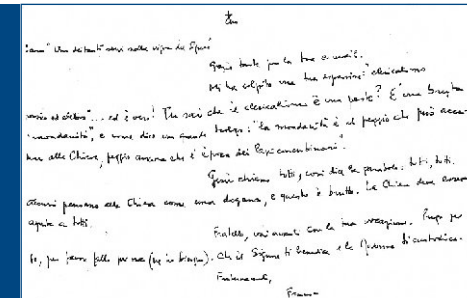 "Un
Grazie tante per la tua e-mail.
Mi ha colpito una tua espressione: "clericalismo
... ed è vero! Tu sai che il clericalismo è una peste? È una brutta
"mondanità", e come dice un grande teologo: "la mondanità è il peggio che può
alla Chiesa, peggio ancora che l'epoca dei Papi concubinari".
Gesù chiama tutti, così dice la parabola: tutti, tutti.
Alcuni pensano alla Chiesa come una dogana, e questo è brutto. La Chiesa deve essere
aperta a tutti.
Fratello, vai avanti con la tua vocazione. Prego per
te, per favore fallo per me (ne ho bisogno). Che il Signore ti benedica e la Madonna ti custodisca.
Fraternamente,